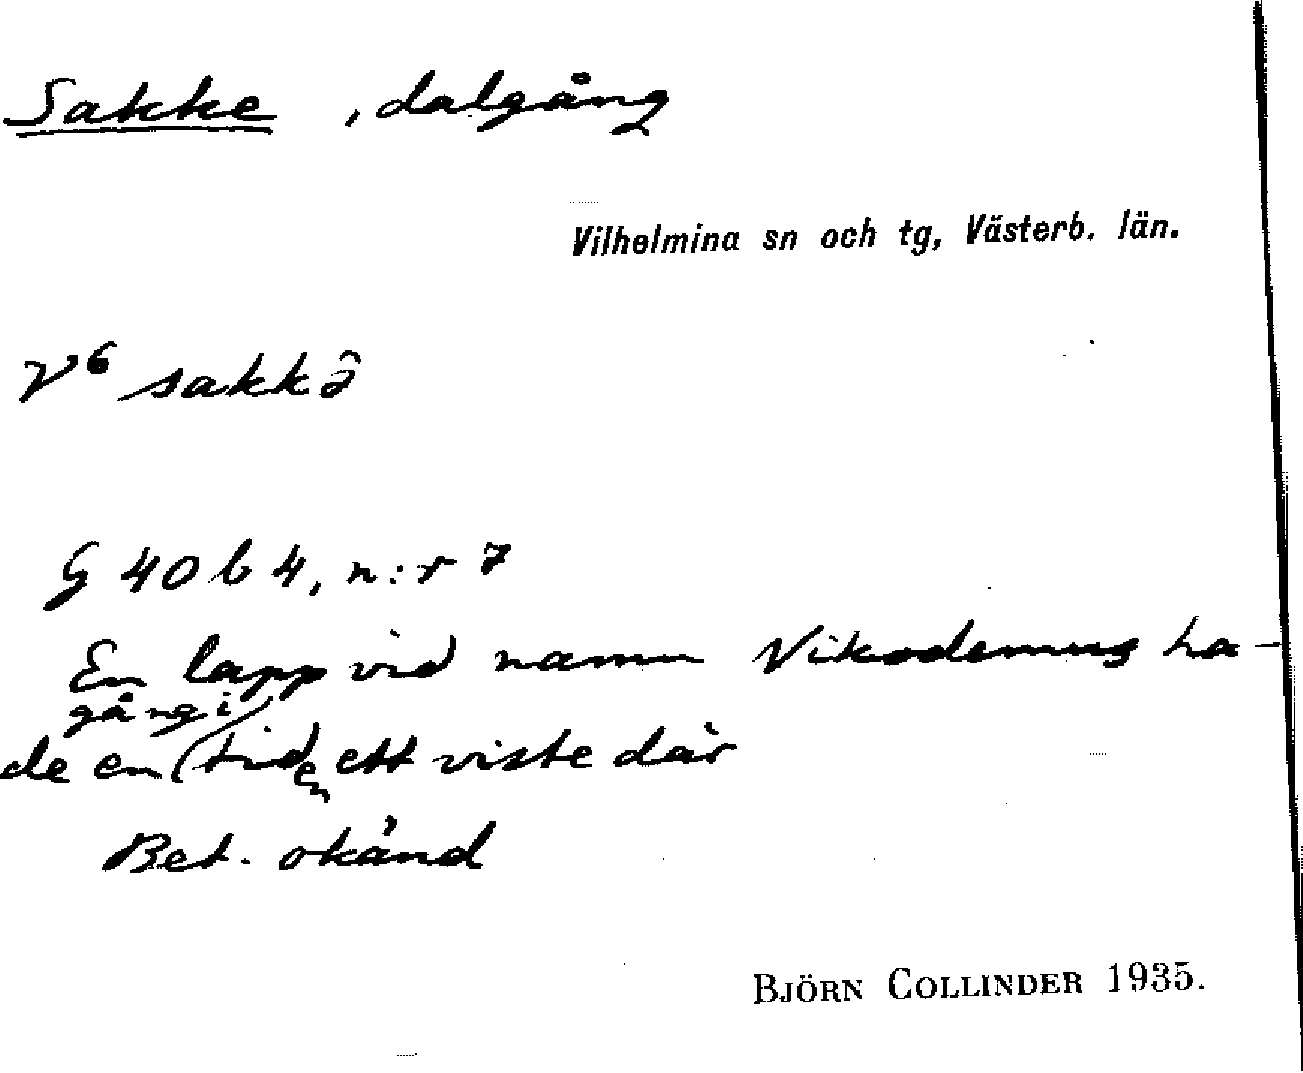 Sakke, dalgång
Vilhelmina sn och tg, Västerb. län.
V⁶ sakkə̂
G 40 b 4, n:r 7
En lapp vid namn Nikodemus ha-
gång i
de en (tiden ett viste där
Bet. okänd
BJÖRN COLLINDER 1935.